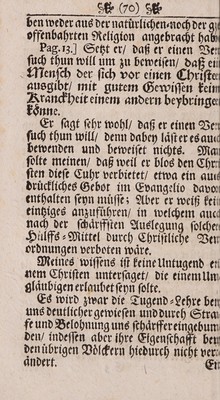 (70)
ben weder aus der natürlichen noch der
offenbahrten Religion angebracht hab
Pag. 13.] Setzt er/ daß er einen Ver
such thun will um zu beweisen/ daß ein
Mensch der sich vor einen Christen
ausgibt/ mit gutem Gewissen kein
Kranckheit einem andern beybringen
könne.
Er sagt sehr wohl/ daß er einen Ver
such thun will/ denn dabey läst er es auch
bewenden und beweiset nichts. Man
solte meinen/ daß weil er blos den Chri
sten diese Cuhr verbietet/ etwa ein aus
drückliches Gebot im Evangelio davon
enthalten seyn müsse: Aber er weiß kein
eintziges anzuführen/ in welchem auch
nach der schärfften Auslegung solcher
Hülffs-Mittel durch Christliche Ver
ordnungen verboten wäre.
Meines wissens ist keine Untugend ei
nem Christen untersaget/ die einem Un
gläubigen erlaubet seyn solte.
Es wird zwar die Tugend-Lehre bey
uns deutlicher gewiesen und durch Straf
fe und Belohnung uns schärffer eingebun
den/ indessen aber ihre Eigenschafft bey
den übrigen Völckern hiedurch nicht ver
ändert.